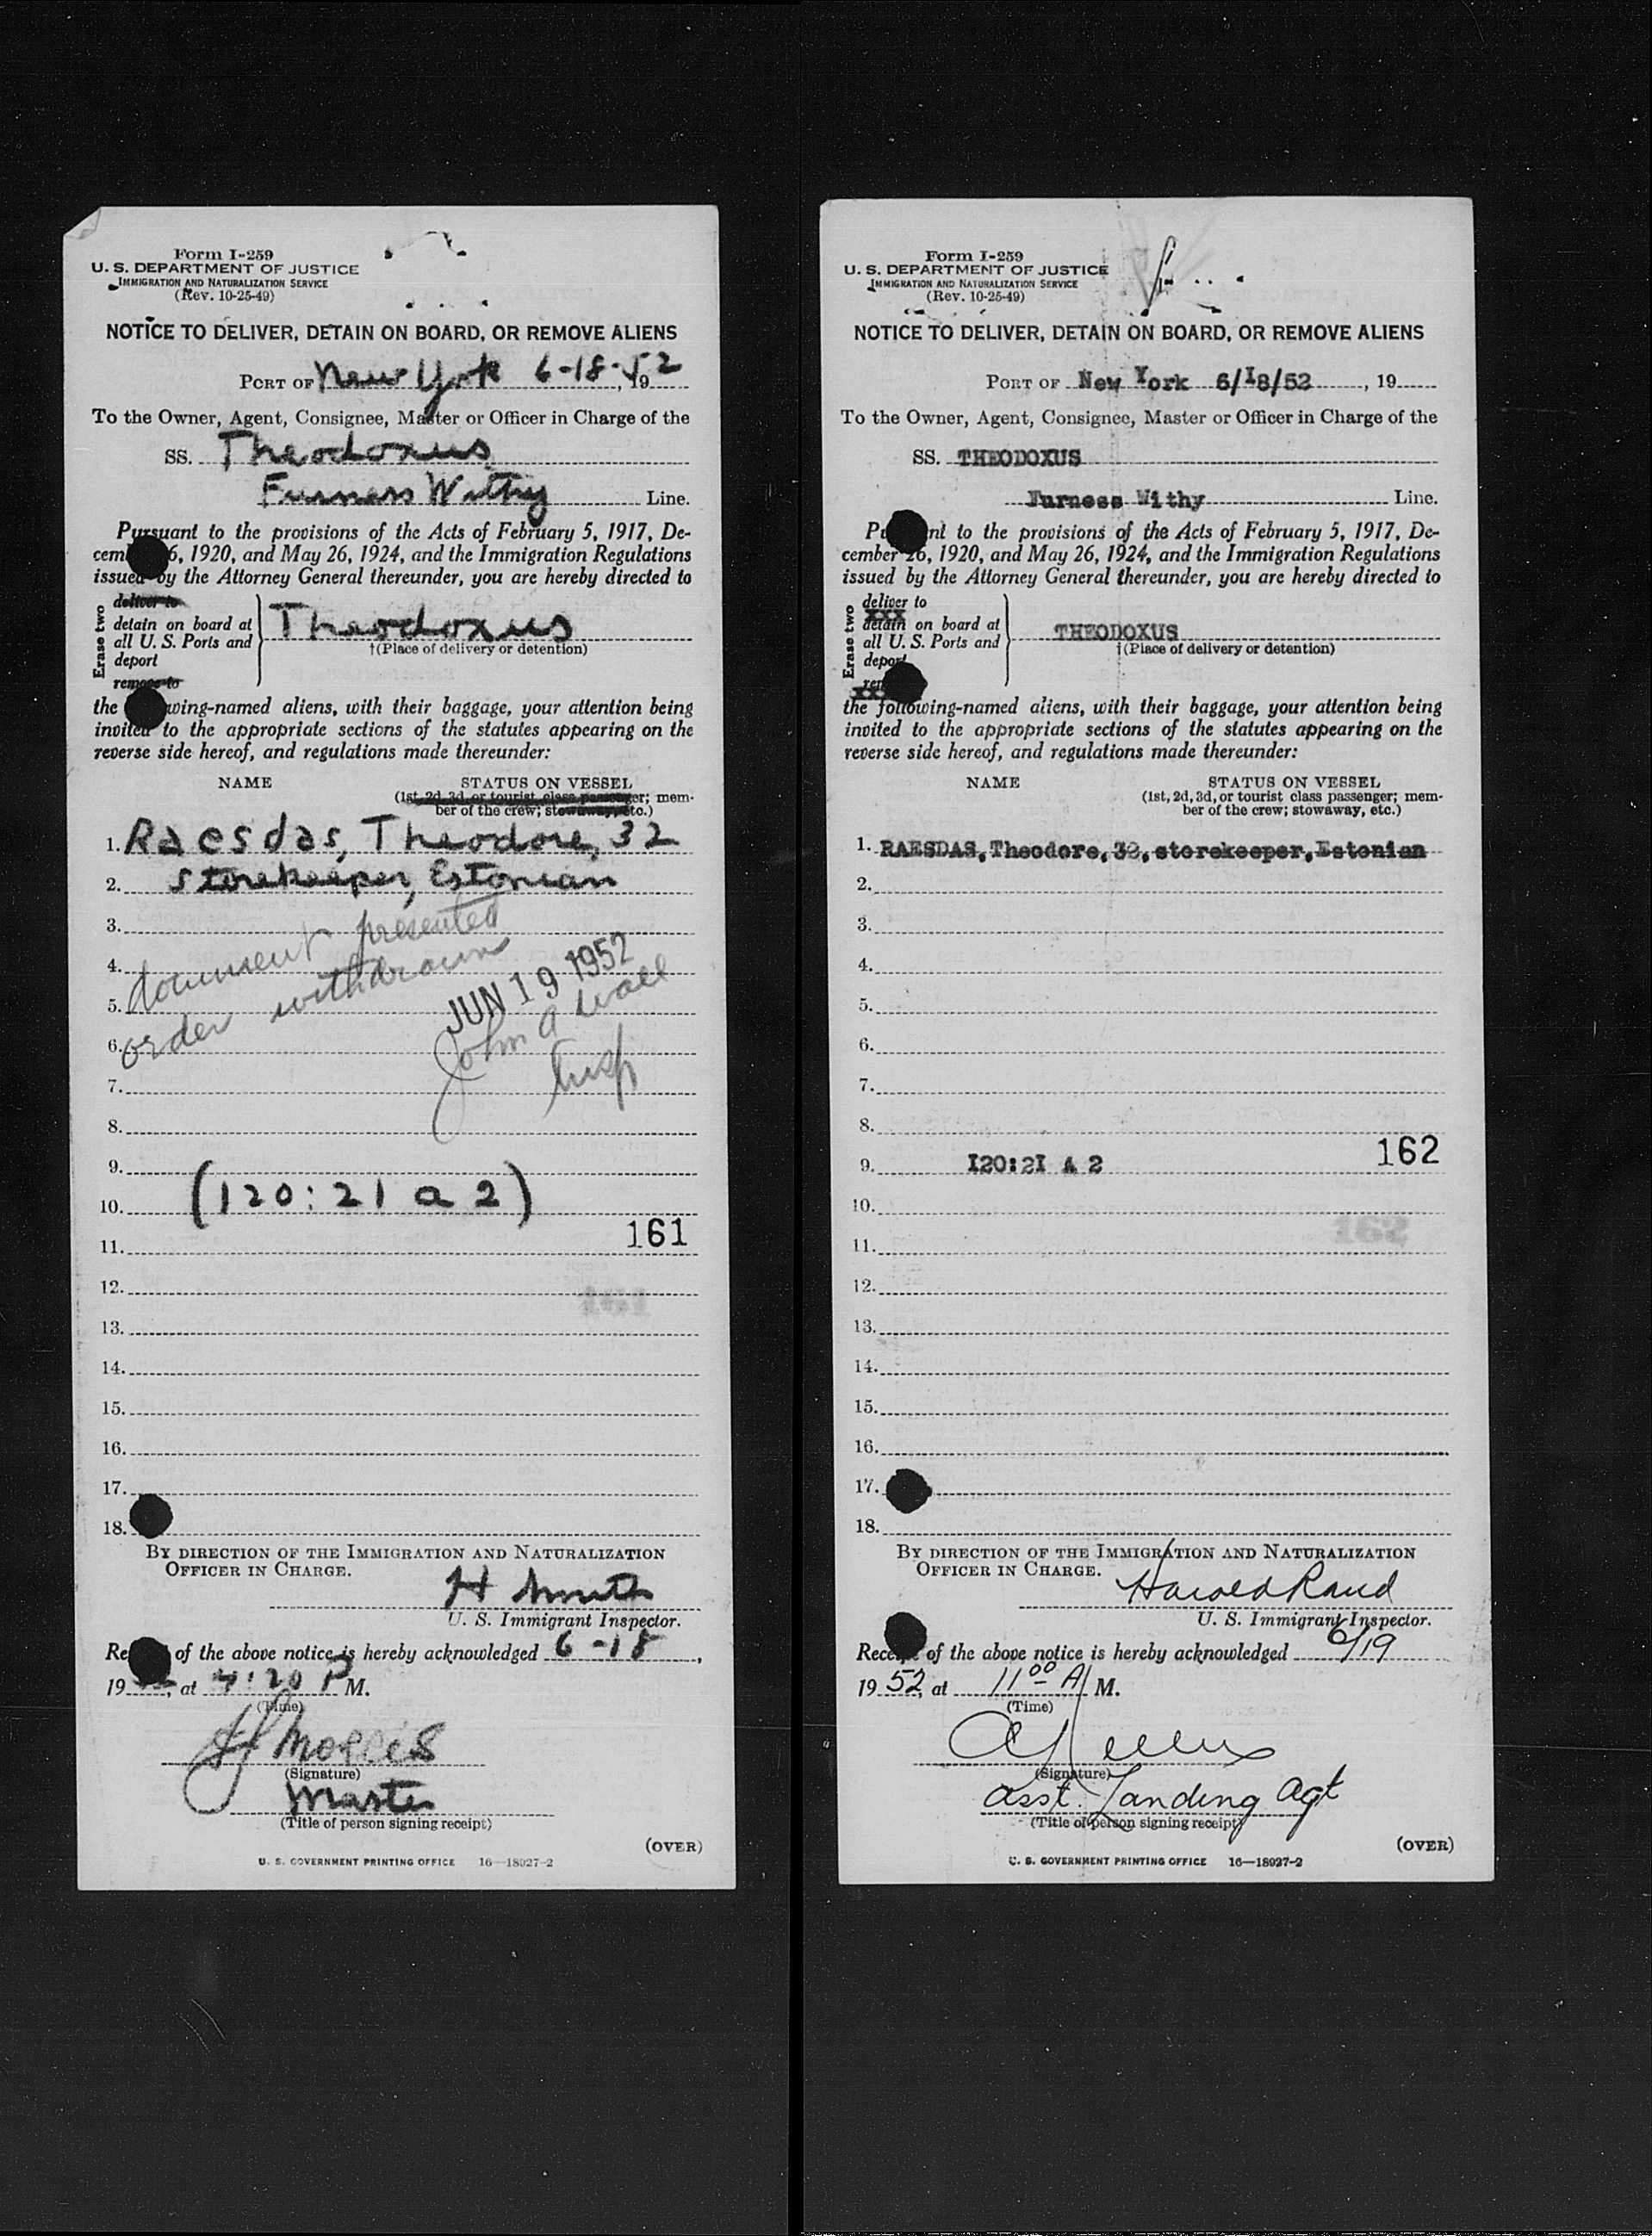 Form I-259
U. S. DEPARTMENT OF JUSTICE
IMMIGRATION AND NATURALIZATION SERVICE
(Rev. 10-25-49)
NOTICE TO DELIVER, DETAIN ON BOARD, OR REMOVE ALIENS
PORT OF New York 6-18-, 1952
To the Owner, Agent, Consignee, Master or Officer in Charge of the
SS. Theodoxus
Furness Withy Line.
Pursuant to the provisions of the Acts of February 5, 1917, De-
cem 6, 1920, and May 26, 1924, and the Immigration Regulations
issued by the Attorney General thereunder, you are hereby directed to
Erase two
deliver to
detain on board at
all U. S. Ports and
deport
remove to
Theodoxus
†(Place of delivery or detention)
the wing-named aliens, with their baggage, your attention being
invited to the appropriate sections of the statutes appearing on the
reverse side hereof, and regulations made thereunder:
NAME STATUS ON VESSEL
(1st, 2d, 3d, or tourist class passenger; mem-
ber of the crew; stowaway, etc.)
1. Raesdas, Theodore, 32
2. Storekeeper, Estonian
3.
document presented
4.
order withdrawn
5.
JUN 19 1952
6.
John A Wall
7.
Insp
8.
9.
10. (120:21 a 2)
161
11.
12.
161
13.
14.
15.
16.
17.
18.
BY DIRECTION OF THE IMMIGRATION AND NATURALIZATION
OFFICER IN CHARGE.
H Smith
U. S. Immigrant Inspector.
Re of the above notice is hereby acknowledged 6-18,
19, at 4:20 P M.
(Time)
Morris
(Signature)
Master
(Title of person signing receipt)
(OVER)
U. S. GOVERNMENT PRINTING OFFICE 16—18027-2
Form I-259
U. S. DEPARTMENT OF JUSTICE
IMMIGRATION AND NATURALIZATION SERVICE
(Rev. 10-25-49)
NOTICE TO DELIVER, DETAIN ON BOARD, OR REMOVE ALIENS
PORT OF New York 6/I8/52, 19
To the Owner, Agent, Consignee, Master or Officer in Charge of the
SS. THEODOXUS
Furness Withy Line.
Pu nt to the provisions of the Acts of February 5, 1917, De-
cember 26, 1920, and May 26, 1924, and the Immigration Regulations
issued by the Attorney General thereunder, you are hereby directed to
Erase two
deliver to
xxx
detain on board at
all U. S. Ports and
deport
rem
xx
THEODOXUS
†(Place of delivery or detention)
the following-named aliens, with their baggage, your attention being
invited to the appropriate sections of the statutes appearing on the
reverse side hereof, and regulations made thereunder:
NAME STATUS ON VESSEL
(1st, 2d, 3d, or tourist class passenger; mem-
ber of the crew; stowaway, etc.)
1. RAESDAS, Theodore, 32, storekeeper, Estonian
2.
3.
4.
5.
6.
7.
8.
162
9. I20:2I A 2
10.
162
11.
12.
13.
14.
15.
16.
17.
18.
BY DIRECTION OF THE IMMIGRATION AND NATURALIZATION
OFFICER IN CHARGE.
Harold Rand
U. S. Immigrant Inspector.
Receipt of the above notice is hereby acknowledged 6/19
1952, at 11 00 A M.
(Time)
(Signature)
asst. Landing Agt
(Title of person signing receipt)
(OVER)
U. S. GOVERNMENT PRINTING OFFICE 16—18027-2